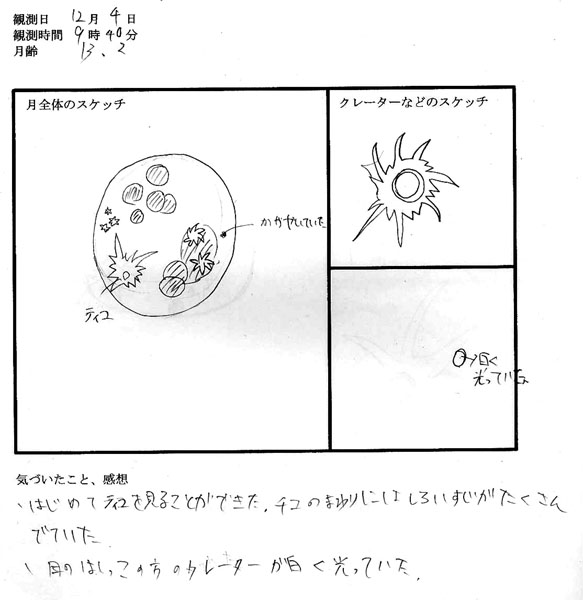 観測日 12月4日
観測時間 9時40分
月齢 13.2
月全体のスケッチ
クレーターなどのスケッチ
かがやいていた
ティコ
白く
光っていた
気づいたこと、感想
、はじめてティコを見ることができた。チコのまわりにはしろいすじがたくさん
でていた
、月のはしっこの方のクレーターが白く光っていた。